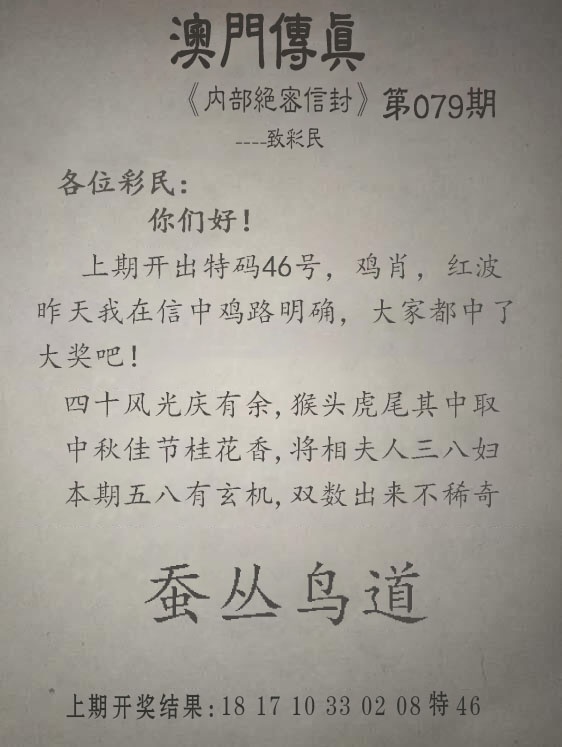 澳門傳真
《内部絕密信封》第079期
----致彩民
各位彩民：
你们好！
上期开出特码46号，鸡肖，红波
昨天我在信中鸡路明确，大家都中了
大奖吧！
四十风光庆有余,猴头虎尾其中取
中秋佳节桂花香,将相夫人三八妇
本期五八有玄机,双数出来不稀奇
蚕丛鸟道
上期开奖结果:18 17 10 33 02 08 特 46